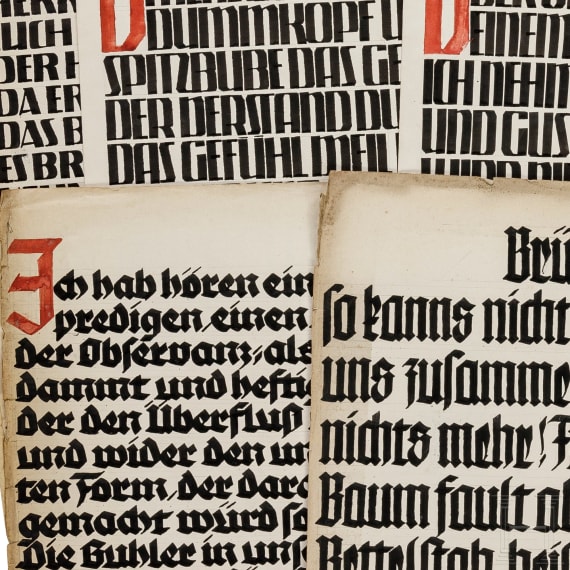 UCH
DER
DA ER
DAS B
ES BR
DUMMKOPF U
SPITZBUBE DAS GE
DER VERSTAND DU
DAS GEFÜHL MEI
EINEM
ICH NEHM
UND GUS
WIRD DU
Ich hab hören ein
predigen, einen
der Observanz, als
dammt und hefti
der den Überfluß
und wider den un
ten Form, der dar
gemacht würd so
Die Buhler in uns
Brü
so kanns nicht
uns zusamme
nichts mehr! F
Baum fault a
Bettelstab hei